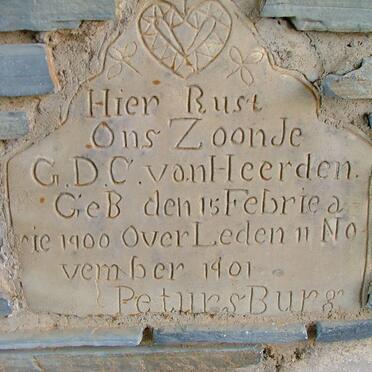 Hier Rust
Ons Zoonje
G.D.C. van Heerden.
GeB den 15 Febrie a
rie 1900 OverLeden 11 No
vember 1901
PetursBurg